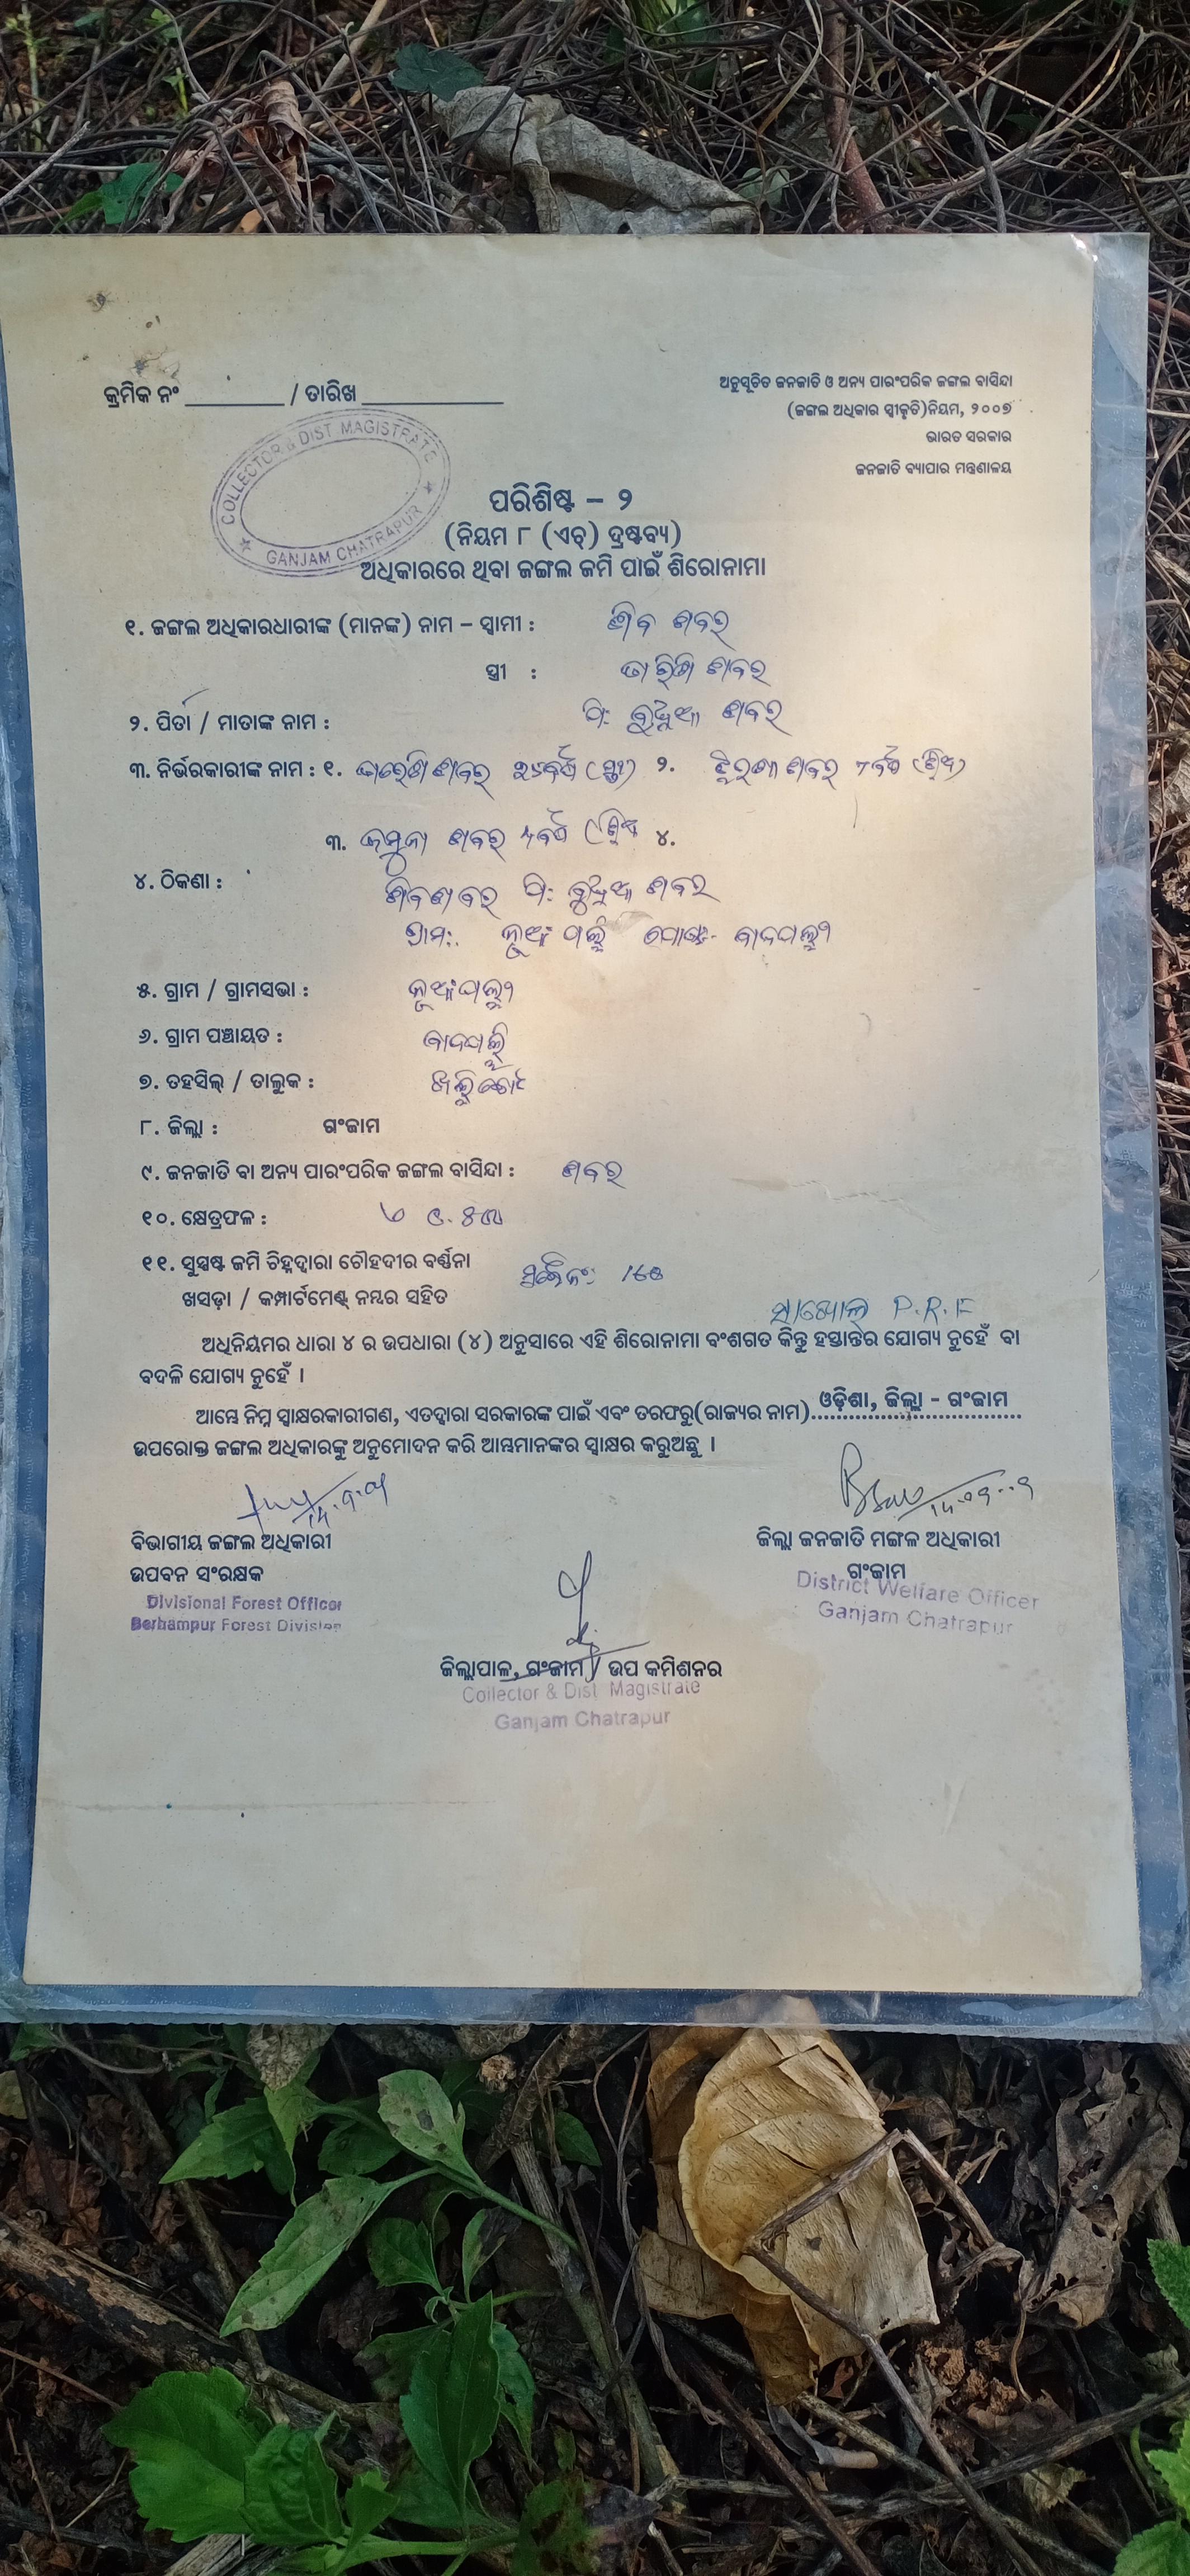 କ୍ରମିକ ନଂ ________ / ତାରିଖ ____________
ଅନୁସୂଚିତ ଜନଜାତି ଓ ଅନ୍ୟ ପାରଂପରିକ ଜଙ୍ଗଲ ବାସିନ୍ଦା
(ଜଙ୍ଗଲ ଅଧିକାର ସ୍ୱୀକୃତି)ନିୟମ, ୨୦୦୭
ଭାରତ ସରକାର
ଜନଜାତି ବ୍ୟାପାର ମନ୍ତ୍ରଣାଳୟ
COLLECTOR & DIST. MAGISTRATE
GANJAM CHATRAPUR
ପରିଶିଷ୍ଟ – ୨
(ନିୟମ ୮ (ଏଚ୍) ଦ୍ରଷ୍ଟବ୍ୟ)
ଅଧିକାରରେ ଥିବା ଜଙ୍ଗଲ ଜମି ପାଇଁ ଶିରୋନାମା
୧. ଜଙ୍ଗଲ ଅଧିକାରଧାରୀଙ୍କ (ମାନଙ୍କ) ନାମ – ସ୍ୱାମୀ : ଶିବ ଶବର
ସ୍ତ୍ରୀ : ଶବର
୨. ପିତା / ମାତାଙ୍କ ନାମ : ପି: ଶବର
୩. ନିର୍ଭରକାରୀଙ୍କ ନାମ : ୧. ଶବର (ସ୍ତ୍ରୀ) ୨. ଶବର (ଝିଅ)
୩. ଶବର (ଝିଅ ୪.
୪. ଠିକଣା : ଶିବଶବର ପି: ଶବର
ଗ୍ରାମ: ନୂଆଁପଲ୍ଲୀ ପୋଷ୍ଟ-
୫. ଗ୍ରାମ / ଗ୍ରାମସଭା : ନୂଆଁପଲ୍ଲୀ
୬. ଗ୍ରାମ ପଞ୍ଚାୟତ :
୭. ତହସିଲ୍ / ତାଲୁକ : ଖଲ୍ଲିକୋଟ
୮. ଜିଲ୍ଲା : ଗଂଜାମ
୯. ଜନଜାତି ବା ଅନ୍ୟ ପାରଂପରିକ ଜଙ୍ଗଲ ବାସିନ୍ଦା : ଶବର
୧୦. କ୍ଷେତ୍ରଫଳ :
୧୧. ସୁସ୍ପଷ୍ଟ ଜମି ଚିହ୍ନଦ୍ୱାରା ଚୌହଦୀର ବର୍ଣ୍ଣନା
ଖସଡ଼ା / କମ୍ପାର୍ଟମେଣ୍ଟ୍ ନମ୍ବର ସହିତ
P.R.F
ଅଧିନିୟମର ଧାରା ୪ ର ଉପଧାରା (୪) ଅନୁସାରେ ଏହି ଶିରୋନାମା ବଂଶଗତ କିନ୍ତୁ ହସ୍ତାନ୍ତର ଯୋଗ୍ୟ ନୁହେଁ ବା
ବଦଳି ଯୋଗ୍ୟ ନୁହେଁ ।
ଆମ୍ଭେ ନିମ୍ନ ସ୍ୱାକ୍ଷରକାରୀଗଣ, ଏତଦ୍ୱାରା ସରକାରଙ୍କ ପାଇଁ ଏବଂ ତରଫରୁ(ରାଜ୍ୟର ନାମ) ଓଡ଼ିଶା, ଜିଲ୍ଲା - ଗଂଜାମ
ଉପରୋକ୍ତ ଜଙ୍ଗଲ ଅଧିକାରଙ୍କୁ ଅନୁମୋଦନ କରି ଆମ୍ଭମାନଙ୍କର ସ୍ୱାକ୍ଷର କରୁଅଛୁ ।
ବିଭାଗୀୟ ଜଙ୍ଗଲ ଅଧିକାରୀ
ଉପବନ ସଂରକ୍ଷକ
Divisional Forest Officer
Berhampur Forest Division
ଜିଲ୍ଲା ଜନଜାତି ମଙ୍ଗଳ ଅଧିକାରୀ
ଗଂଜାମ
District Welfare Officer
Ganjam Chatrapur
ଜିଲ୍ଲାପାଳ, ଗଂଜାମ / ଉପ କମିଶନର
Collector & Dist. Magistrate
Ganjam Chatrapur